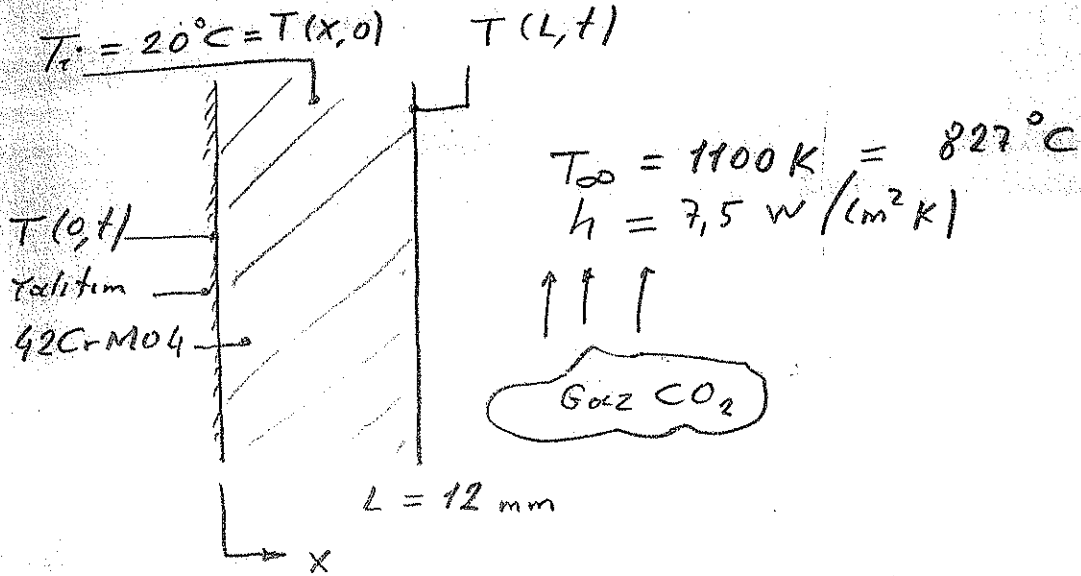 Ti = 20°C = T(x,0)
T(L,t)
T∞ = 1100 K = 827 °C
h = 7,5 W/(m² K)
T(0,t)
Yalıtım
42CrMO4
Gaz CO₂
L = 12 mm
x